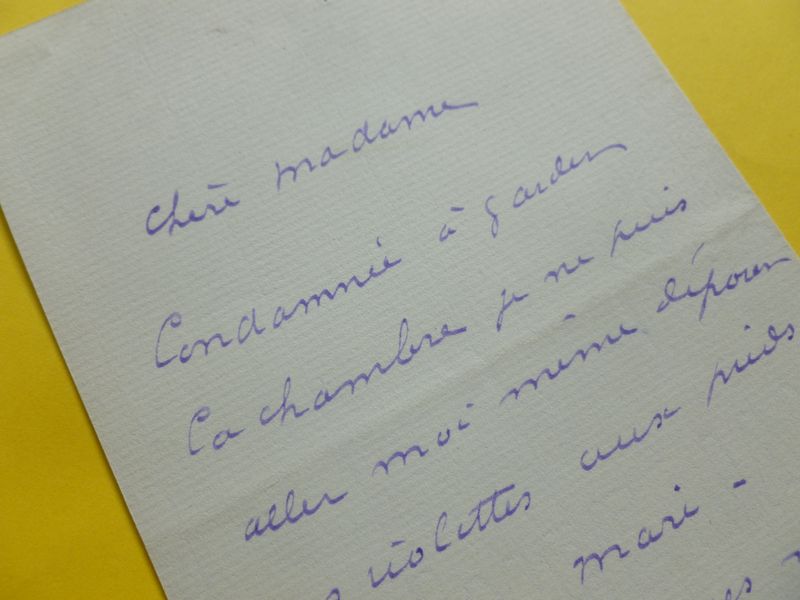 Chère madame
Condamnée à garder
la chambre je ne puis
aller moi même déposer
violettes aux pieds
mari -